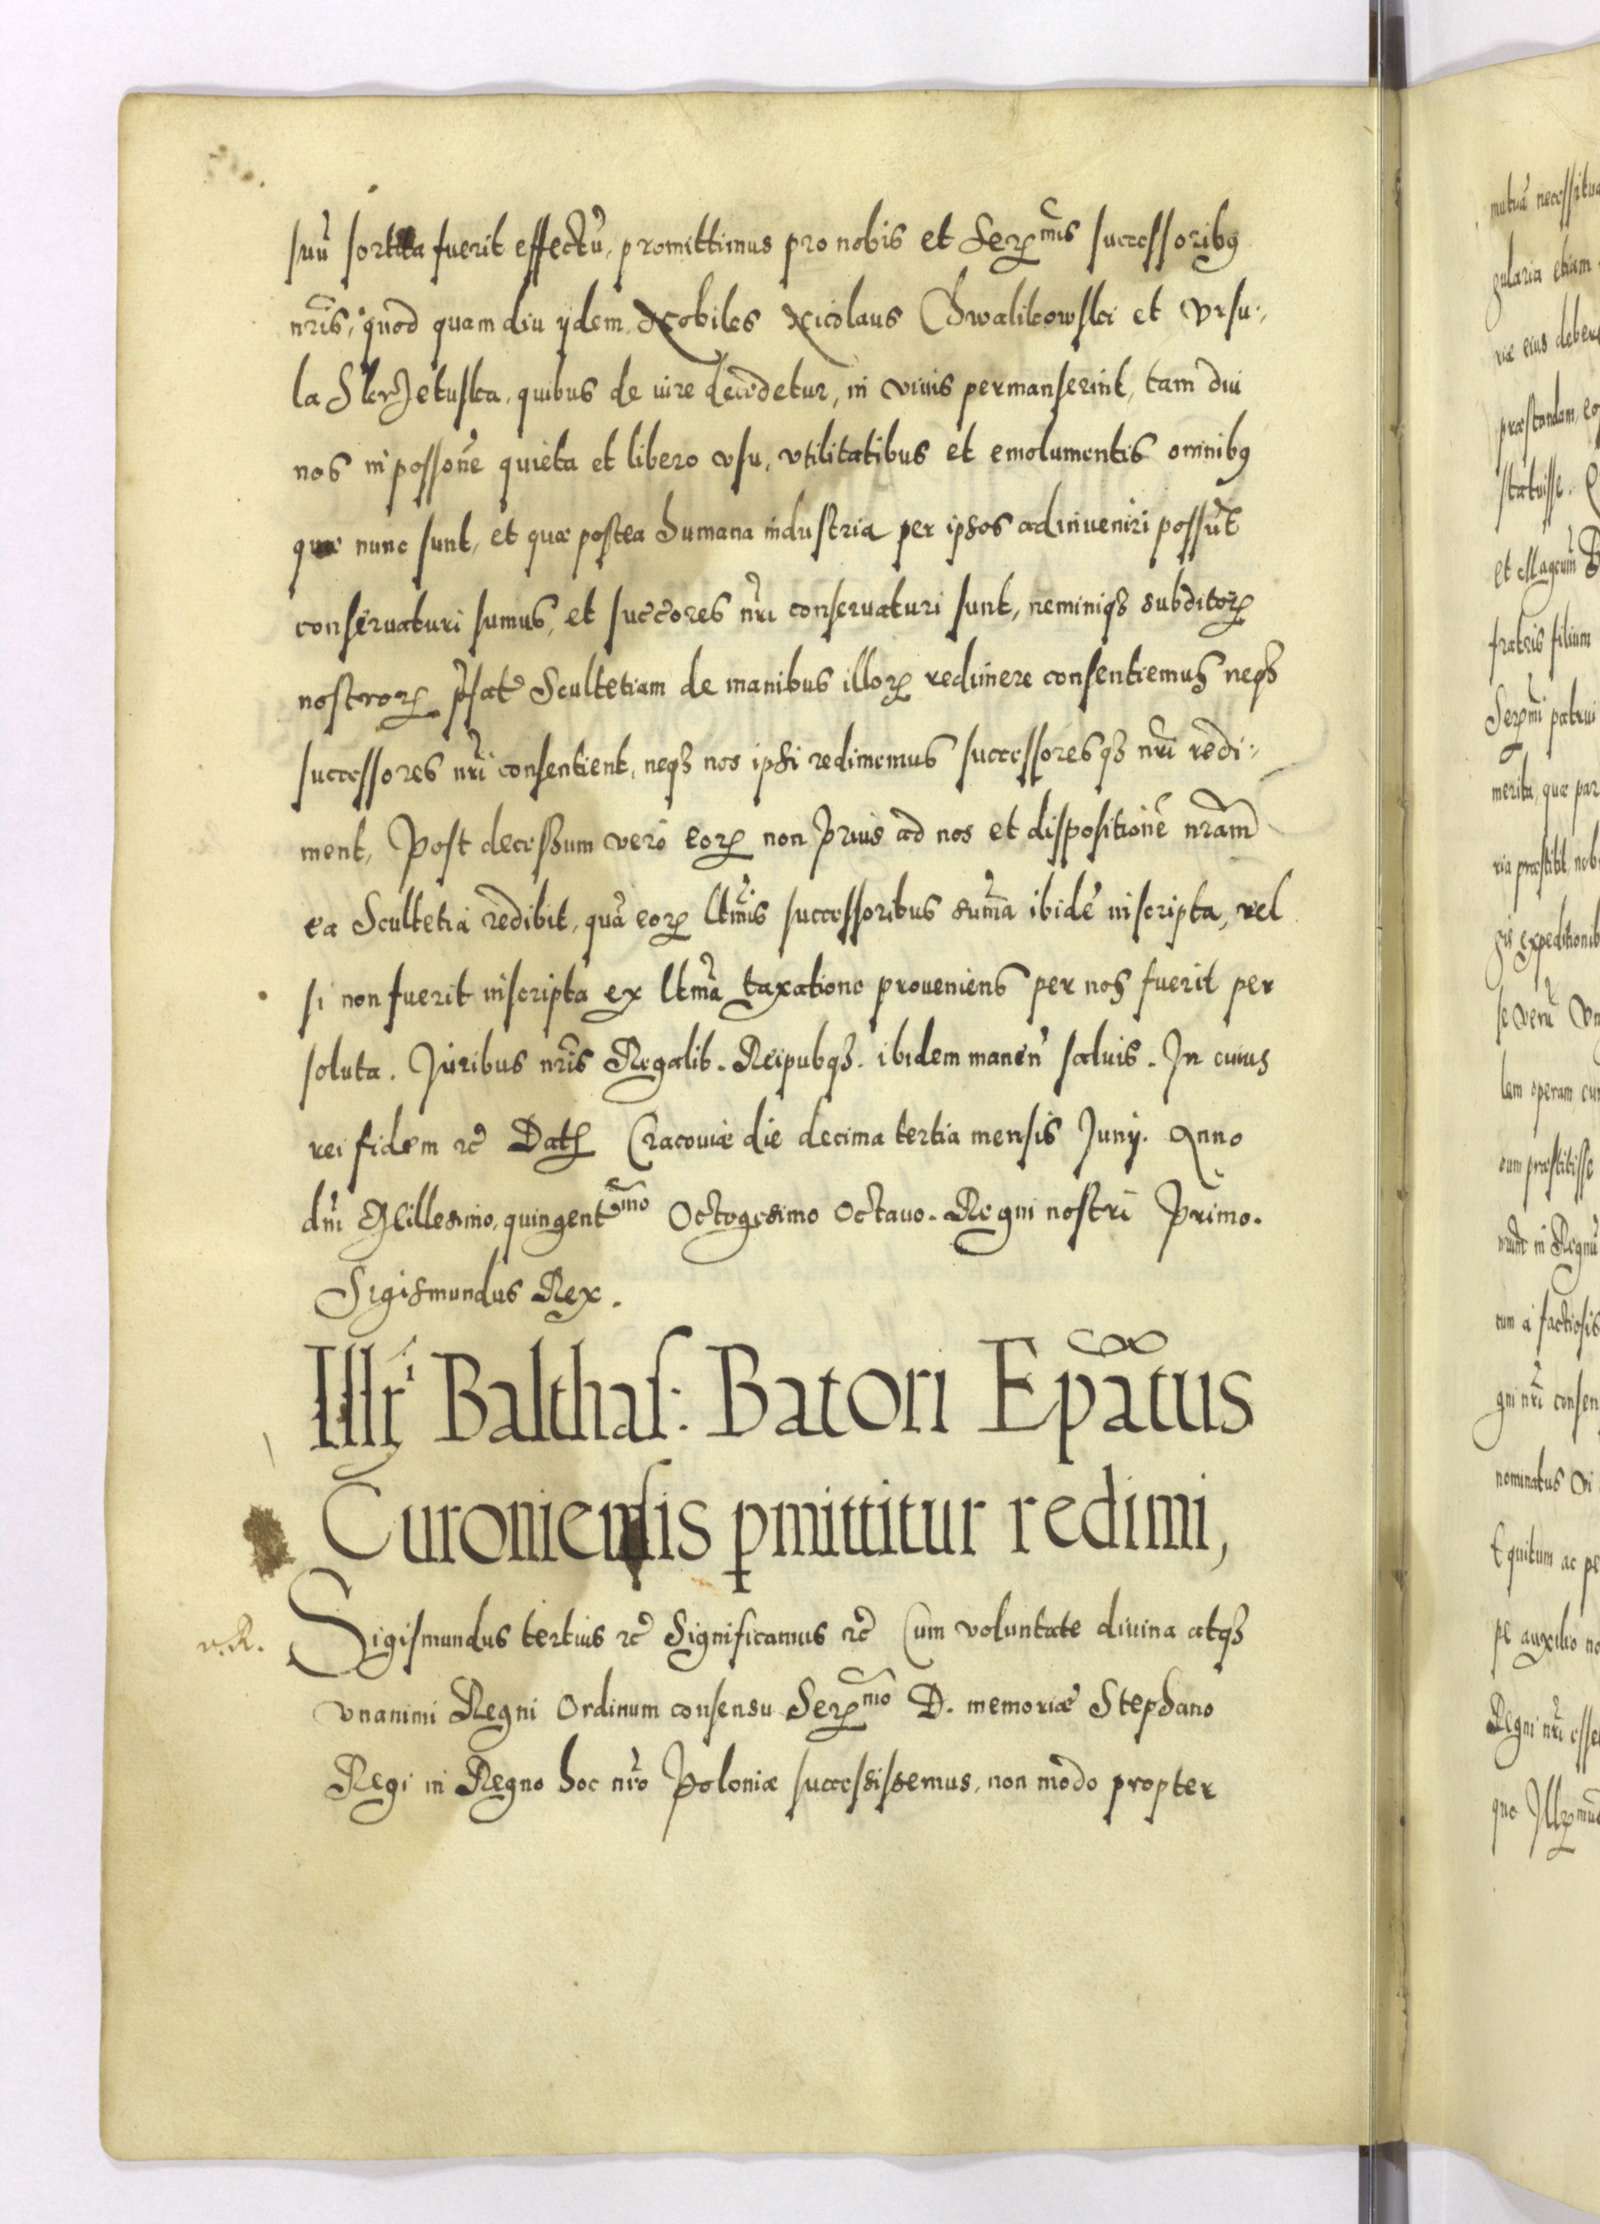 suũ sortita fuerit effectũ, promittimus pro nobis et Serꝫmis successoribꝰ
nr̃is, quod quam diu ydem Nobiles Nicolaus Chwalikowski et Vrsu-
la Skrzetuska, quibus de iure decedetur, in viuis permanserint, tam diu
nos in possõne quieta et libero vsu, vtilitatibus et emolumentis omnibꝰ
quæ nunc sunt, et quæ postea humana industria per ipsos adinueniri possũt
conseruaturi sumus, et succores nr̃i conseruaturi sunt, neminiqꝫ subditorꝝ
nostrorꝝ p̃fatã Scultetiam de manibus illorꝝ redimere consentiemus neqꝫ
successores nr̃i consentient, neqꝫ nos ipsi redimemus successoresqꝫ nr̃i redi-
ment, Post decessum vero eorꝝ non prius ad nos et dispositionẽ nr̃am
ea Scultetia redibit, quã eorꝝ ltm̃is successoribus sum̃a ibidẽ inscripta, vel
si non fuerit inscripta ex ltm̃a taxatione proueniens per nos fuerit per
soluta. Juribus nr̃is Regalib. Reipubqꝫ. ibidem manen̄ saluis. In cuius
rei fidem ꝛc̃ Datꝫ Cracouiæ die decima tertia mensis Junij. Anno
dñi Millesimo, quingentmo Octogesimo Octauo. Regni nostri Primo.
Sigismundus Rex.
Illri Balthas: Batori Ep̃atus
Curoniensis ꝑmittitur redimi,
v. R.
Sigismundus tertius ꝛc̃ Significamus ꝛc̃ Cum voluntate diuina atqꝫ
vnanimi Regni Ordinum consensu Serꝫmo D. memoriæ Stephano
Regi in Regno hoc nr̃o Poloniæ successissemus, non modo propter
mutuã necessitu
gularia etiam
riæ eius debere
præstandam, eo
statuisse.
et Magcum̃ B
fratris filium
Serꝫmi patrui
merita, quæ par
ria præstitit, nob
gis expeditionib
se verũ Vn
lem operam cur
eum præstitisse
in Regnũ
tum à factiosis
gni nr̃i consen
nominatus
Equitum ac pe
pe auxilio no
Regni nr̃i esse
quo